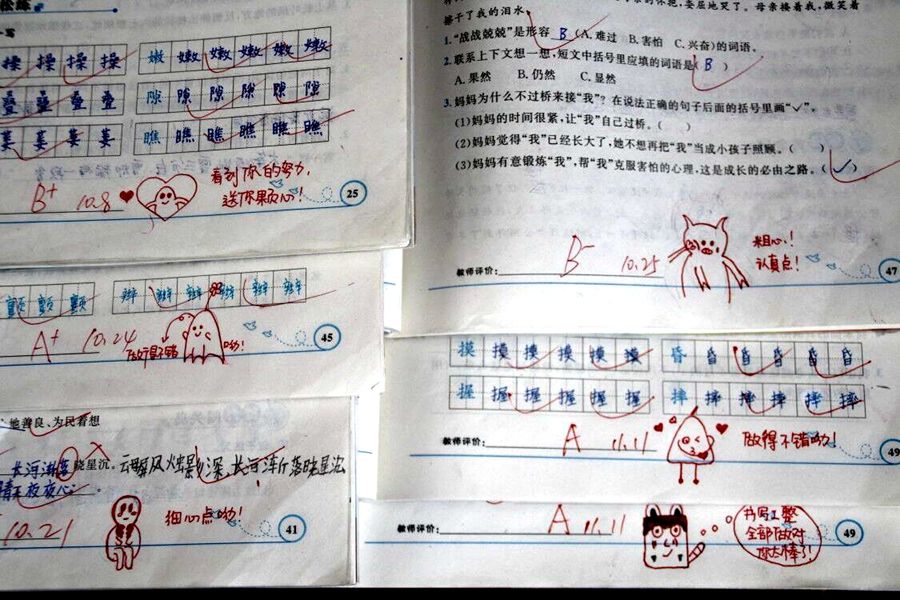 松练
写
操 操 操 操
嫩 嫩 嫩 嫩 嫩
叠 叠 叠 叠
隙 隙 隙 隙 隙 隙
萎 萎 萎 萎
瞧 瞧 瞧 瞧 瞧 瞧
B+ 10.8
看到你的努力,
送你颗心!
25
擦干了我的泪水
1.“战战兢兢”是形容 B (A.难过 B.害怕 C.兴奋)的词语。
2.联系上下文想一想,短文中括号里应填的词语是( B )
A.果然 B.仍然 C.显然
3.妈妈为什么不过桥来接“我”?在说法正确的句子后面的括号里画“✓”。
(1)妈妈的时间很紧,让“我”自己过桥。( )
(2)妈妈觉得“我”已经长大了,她不想再把“我”当成小孩子照顾。( )
(3)妈妈有意锻炼“我”,帮“我”克服害怕的心理,这是成长的必由之路。( ✓ )
教师评价: B- 10.25
粗心!
认真点!
47
颤 颤 颤
辫 辫 辫 辫 辫
A+ 10.24
做得不错哟!
45
摸 摸 摸 摸 摸 摸
昏 昏 昏 昏 昏 昏
握 握 握 握 握 握
摔 摔 摔 摔 摔 摔
教师评价: A 11.11
做得不错哟!
49
他善良、为民着想
长河渐落 晓星沉。云母屏风烛影深,长河渐落晓星沉
夜夜心
10.21
细心点哟!
41
教师评价: A 11.11
书写工整
全部做对
你太棒了!
49